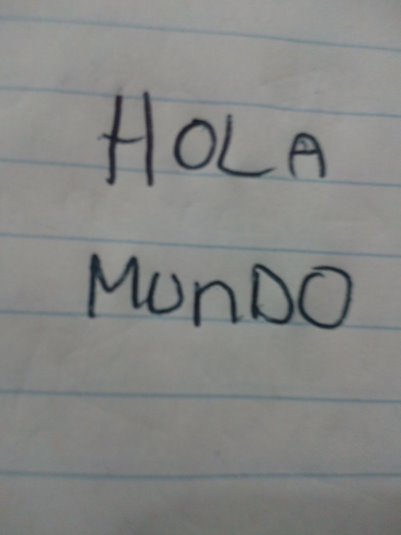 HOLA
MUnDO